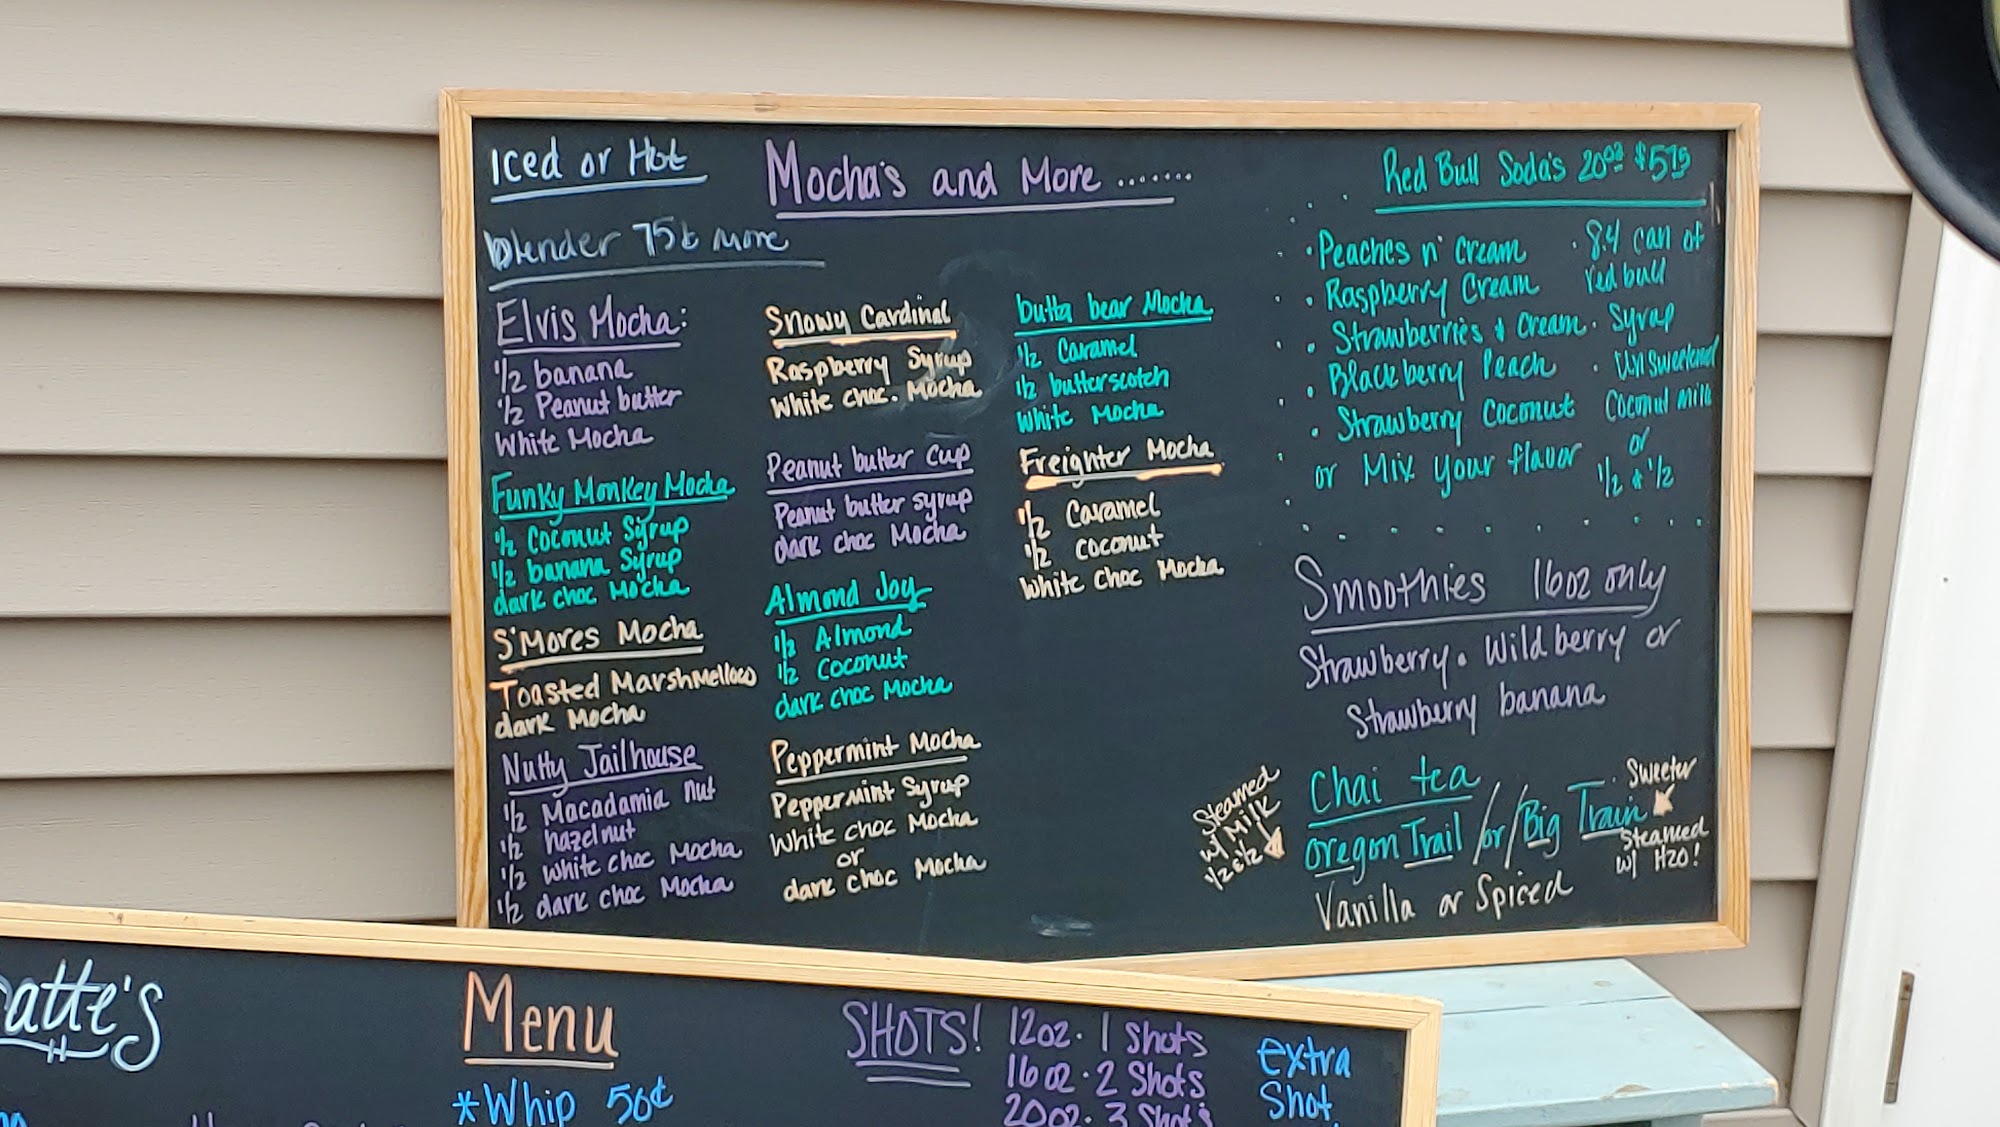 Iced or Hot
blender 75¢ more
Mocha's and More .......
Elvis Mocha:
1/2 banana
1/2 Peanut butter
White Mocha
Funky Monkey Mocha
1/2 Coconut Syrup
1/2 banana Syrup
dark choc Mocha
S'Mores Mocha
Toasted Marshmellow
dark Mocha
Nutty Jailhouse
1/2 Macadamia nut
1/2 hazelnut
1/2 White choc Mocha
1/2 dark choc Mocha
Snowy Cardinal
Raspberry Syrup
White choc. Mocha
Peanut butter cup
Peanut butter syrup
dark choc Mocha
Almond Joy
1/2 Almond
1/2 Coconut
dark choc Mocha
Peppermint Mocha
Peppermint Syrup
White choc Mocha
or
dark choc Mocha
butta bear Mocha
1/2 Caramel
1/2 butterscotch
White Mocha
Freighter Mocha
1/2 Caramel
1/2 coconut
White choc Mocha
Red Bull Soda's 20oz $5.75
· Peaches n' Cream
· Raspberry Cream
· Strawberries & Cream
· Blackberry Peach
· Strawberry Coconut
or Mix your flavor
· 8.4 can of
red bull
· Syrup
· Unsweetened
Coconut milk
or
1/2 & 1/2
Smoothies 16oz only
Strawberry. Wildberry or
Strawberry banana
Chai tea
Oregon Trail /or/ Big Train
Vanilla or Spiced
Steamed
w/ Milk
1/2 & 1/2
Sweeter
Steamed
w/ H2O!
atte's
Menu
*Whip 50¢
SHOTS!
12oz · 1 Shots
16oz · 2 Shots
20oz · 3 Shots
extra
Shot